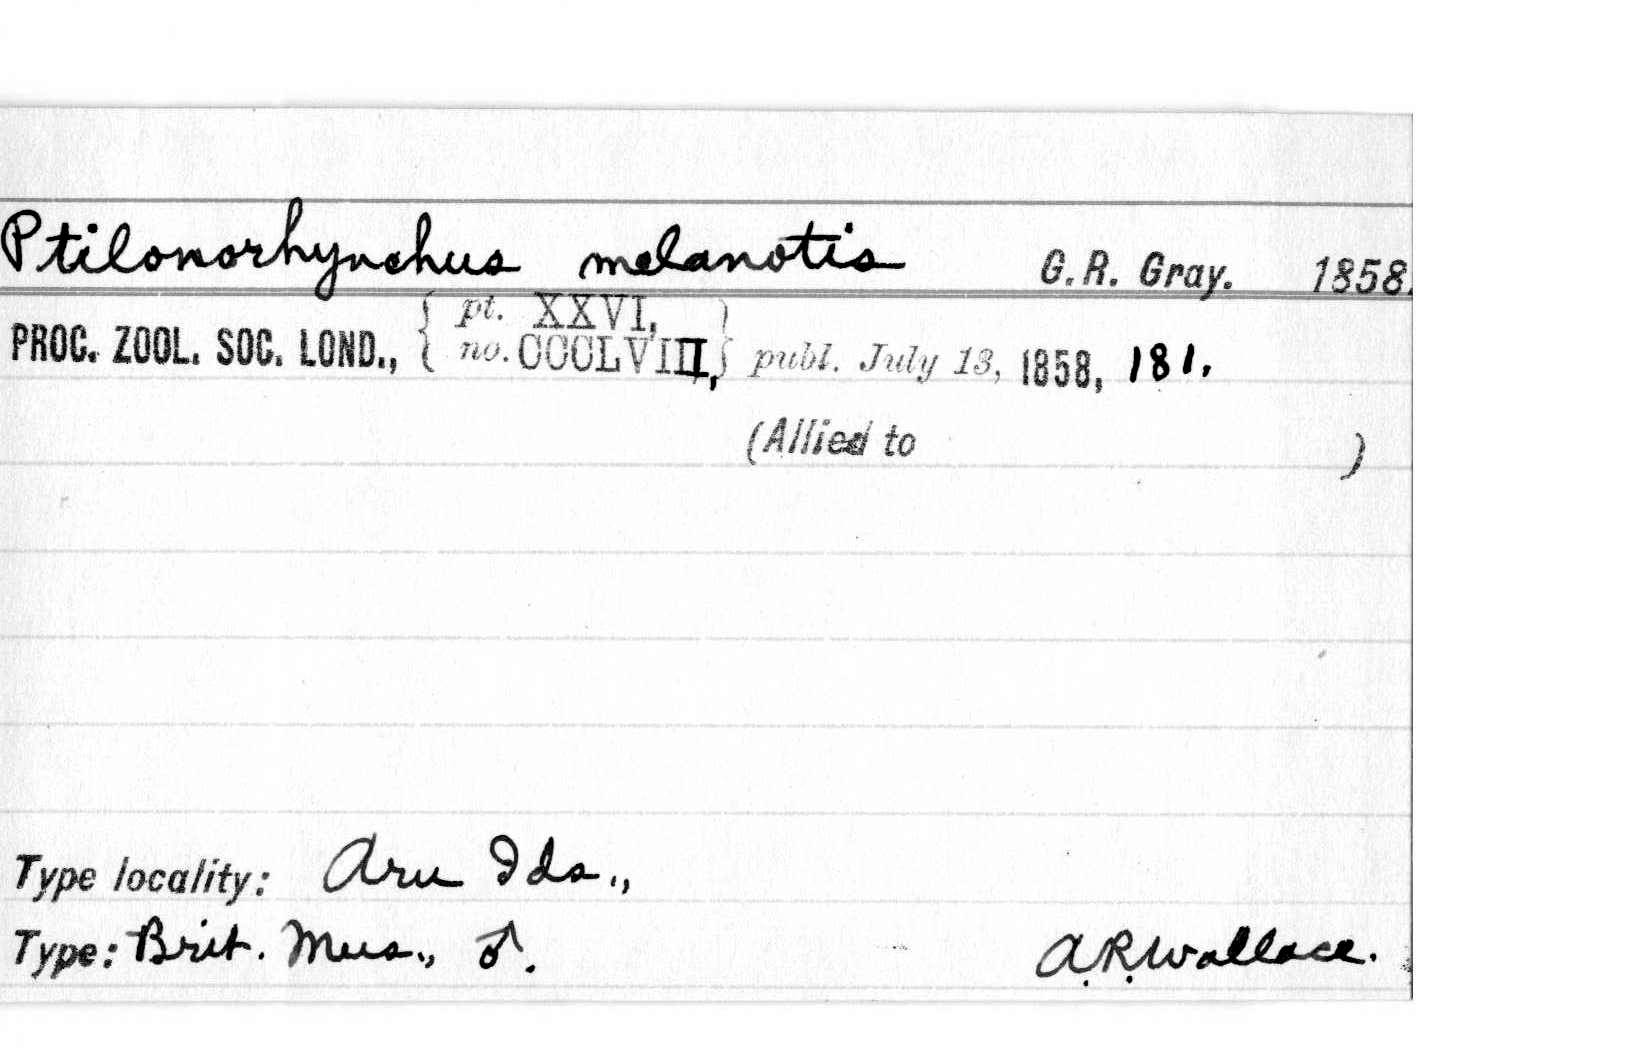 Ptilonorhynchus melanotis G.R. Gray. 1858.
PROC. ZOOL. SOC. LOND., { pt. XXVI, }
{ no. CCCLVIII, } publ. July 13, 1858, 181.
(Allied to )
Type locality: Aru Ids.,
Type: Brit. Mus., ♂. A.R. Wallace.